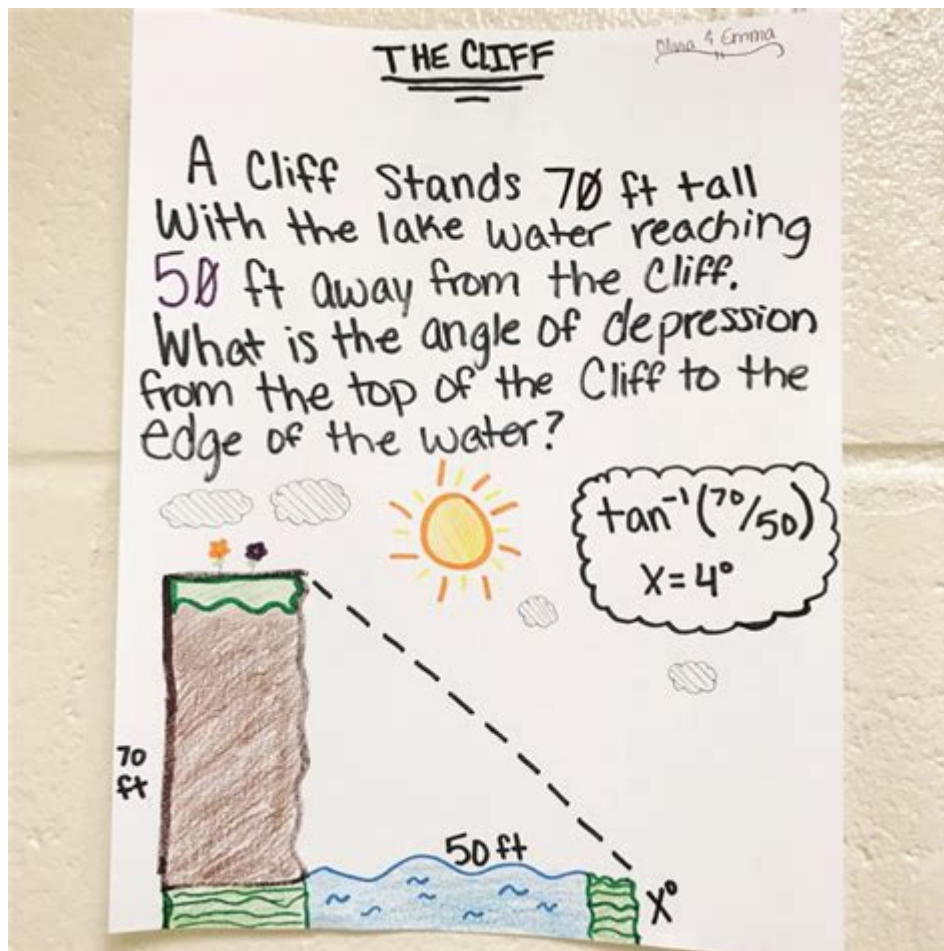 THE CLIFF
& Emma
A Cliff Stands 70 ft tall
With the lake water reaching
50 ft away from the Cliff.
What is the angle of depression
from the top of the Cliff to the
edge of the water?
tan⁻¹(70/50)
X=4°
70
ft
50 ft
X°